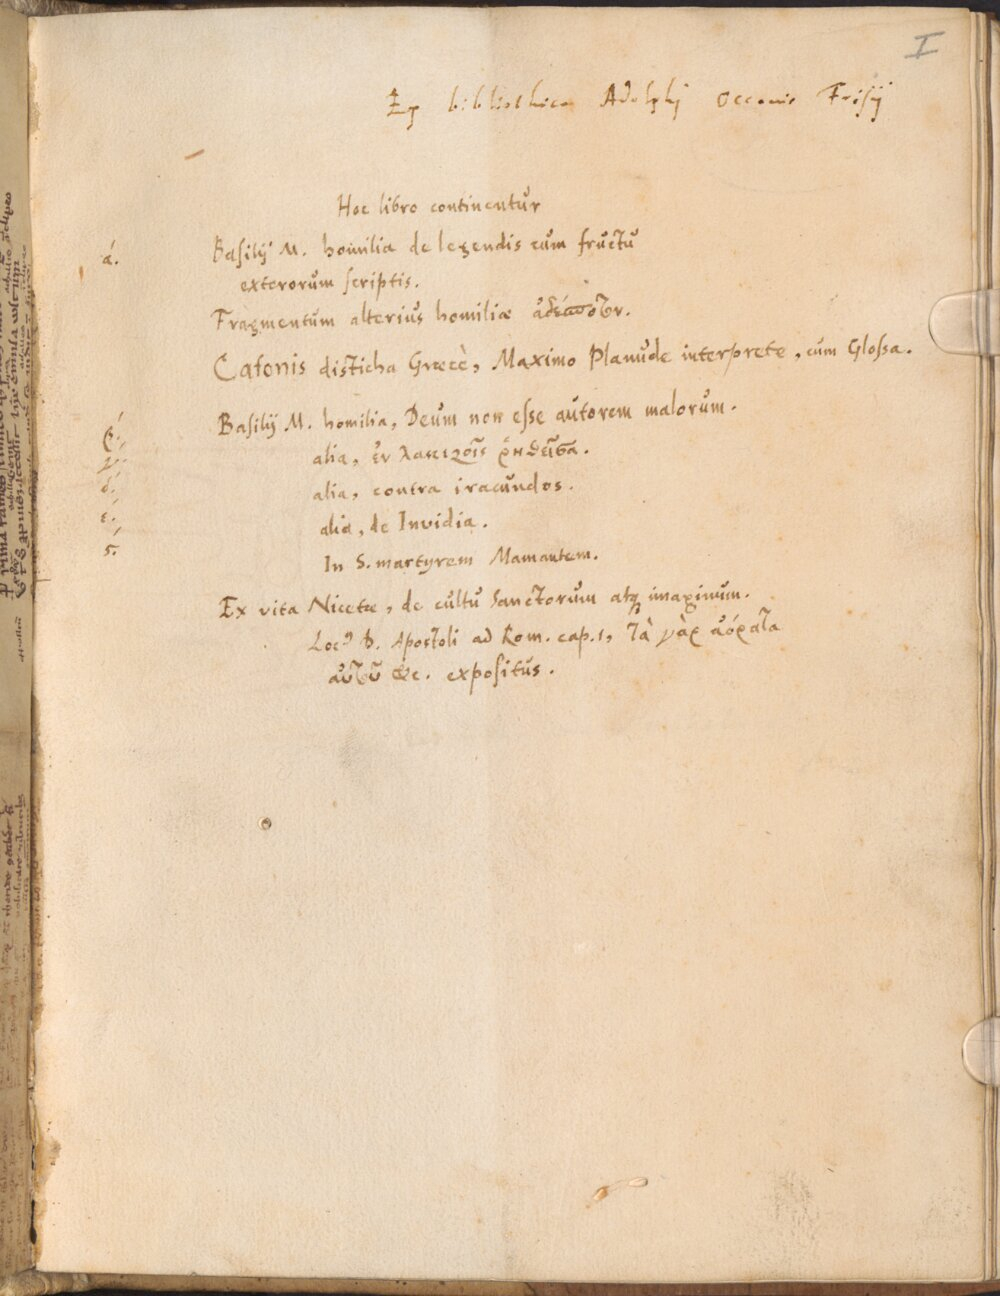 I
Ex bibliotheca Adolphi Occonis Frisij
Hoc libro continentur
ά. Basilij M. homilia de legendis cum fructu
exterorum scriptis.
Fragmentum alterius homiliæ ἀδέσποτον.
Catonis disticha Græcè, Maximo Planude interprete, cum Glossa.
β΄. Basilij M. homilia, Deum non esse autorem malorum.
γ΄. alia, ἐν λακιζοῖς ῥηθεῖσα.
δ΄. alia, contra iracundos.
ε΄. alia, de Invidia.
ϛ΄. In S. martyrem Mamantem.
Ex vita Nicetæ, de cultu Sanctorum atq imaginum.
Locꝰ D. Apostoli ad Rom. cap. 1, τὰ γὰρ ἀόρατα
αὐτοῦ &c. expositus.